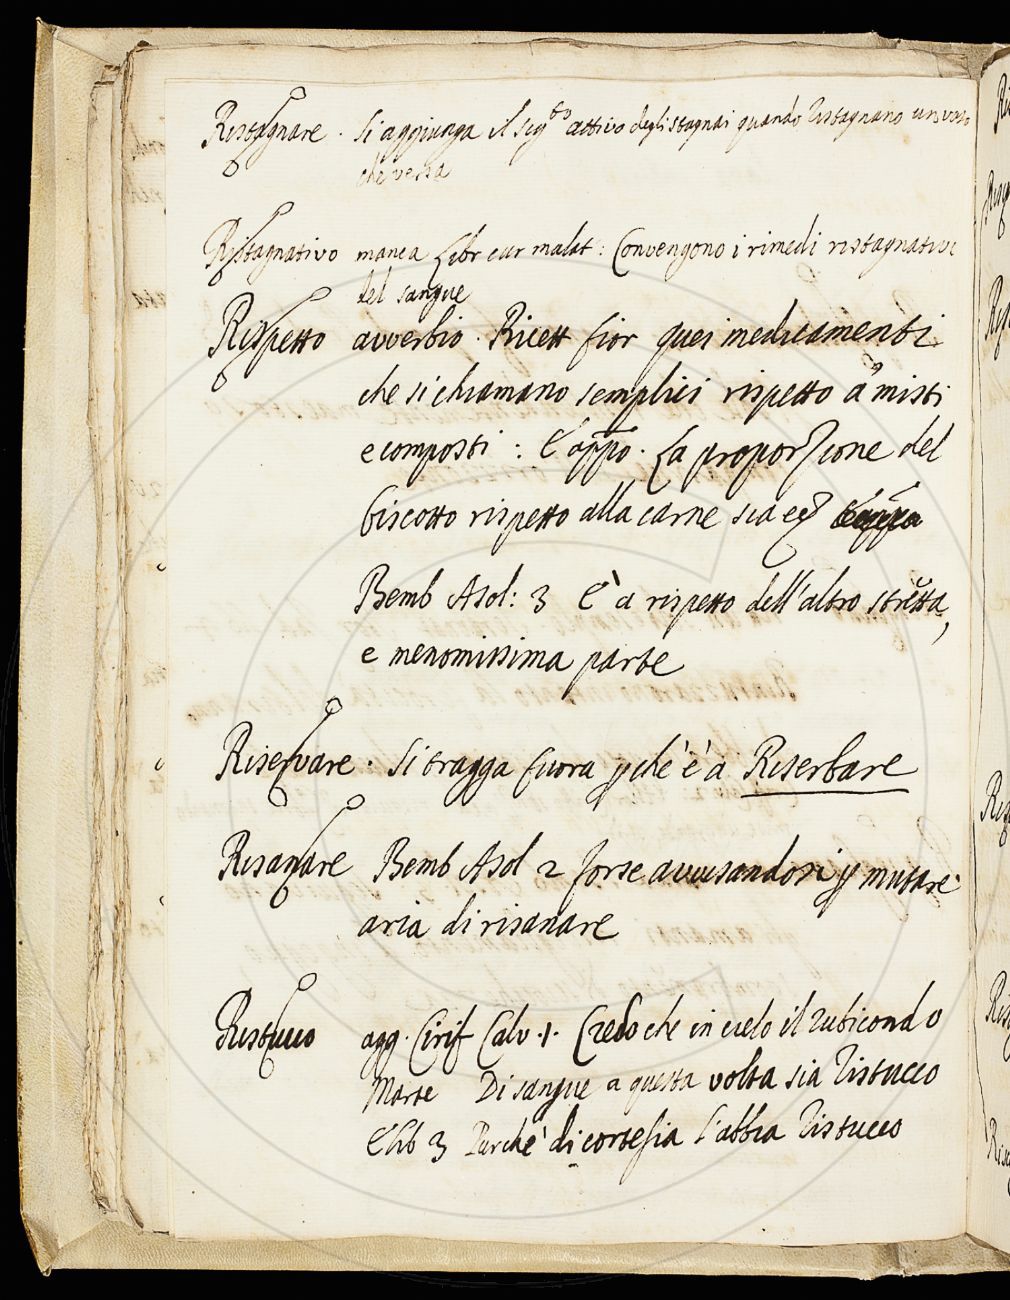 Ristagnare · Si aggiunga il sig.to attivo degli stagnai quando ristagnano un vaso
che versa
Ristagnativo manca Libr cur malat: Convengono i rimedi ristagnativi
del sangue
Rispetto avverbio. Ricett fior quei medicamenti
che si chiamano semplici rispetto a misti
e composti : E appo. La proporzione del
biscotto rispetto alla carne sia
Bemb Asol: 3 E' a rispetto dell'altro stretta,
e menomissima parte
Riservare · Si tragga fuora p chè è à Riserbare
Risanare Bemb Asol 2 forse avvisandosi p mutare
aria di risanare
Ristucco agg. Cirif Calv. 1. Credo che in cielo il rubicondo
Marte Di sangue a questa volta sia ristucco
E lib 3 Purchè di cortesia l'abbia ristucco